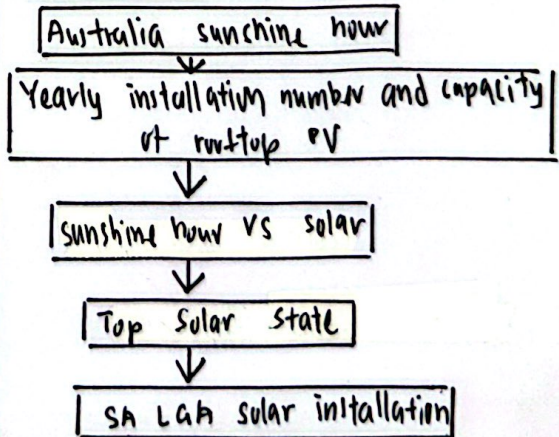 Australia sunchine hour
Yearly installation number and capacity
of rooftop PV
sunshine hour VS solar
Top Solar State
SA LGA solar installation